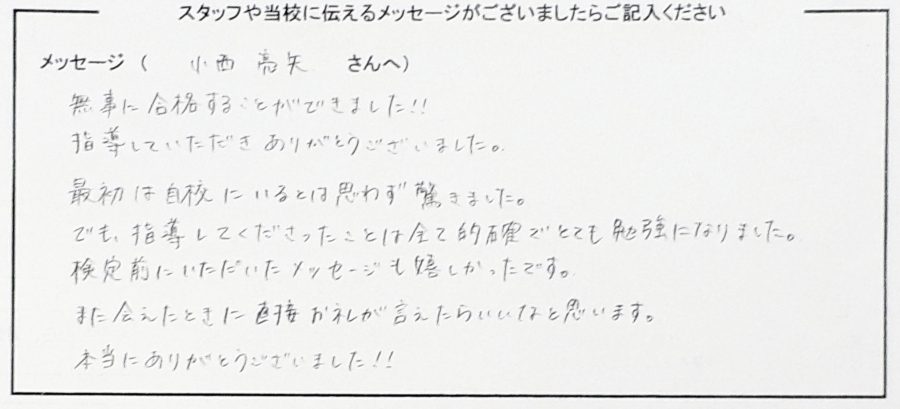 スタッフや当校に伝えるメッセージがございましたらご記入ください
メッセージ ( 小西 亮矢 さんへ)
無事に合格することができました!!
指導していただきありがとうございました。
最初は自校にいるとは思わず驚きました。
でも、指導してくださったことは全て的確でとても勉強になりました。
検定前にいただいたメッセージも嬉しかったです。
また会えたときに直接お礼が言えたらいいなと思います。
本当にありがとうございました!!